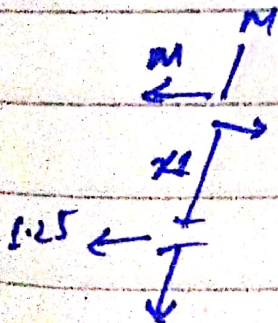 M
m
x1
1.25